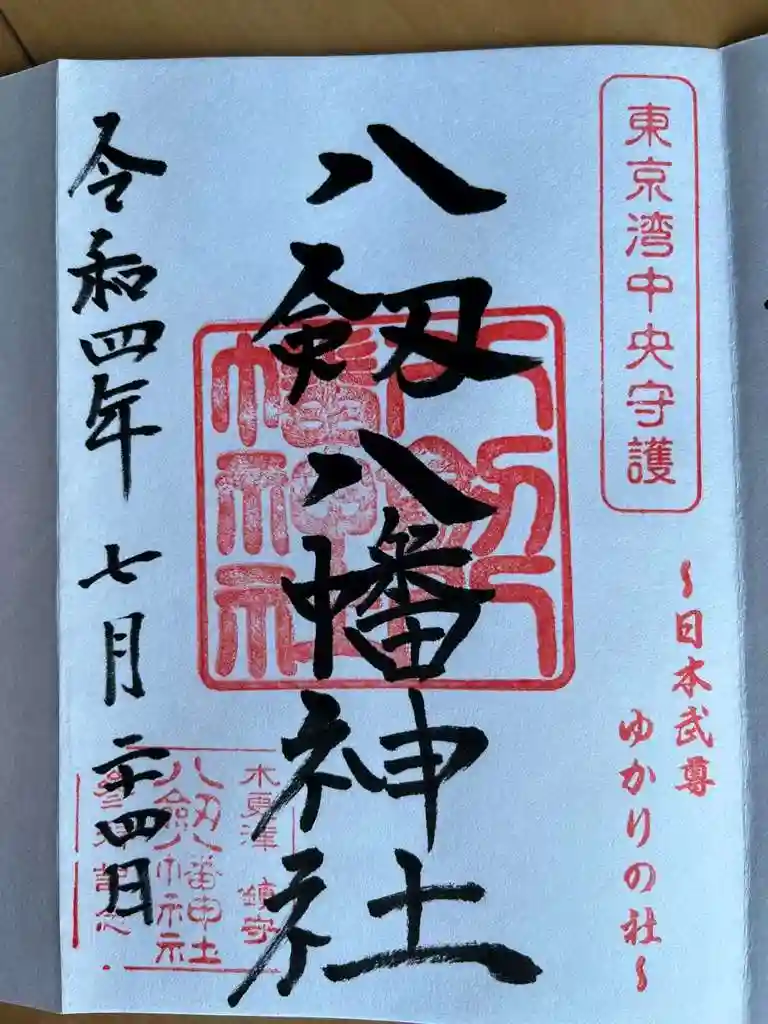 東京湾中央守護
～日本武尊
ゆかりの社～
八剱八幡神社
八剱八幡神社
木更津 鎮守
八剱八幡神社
参拝記念
令和四年 七月 二十四日